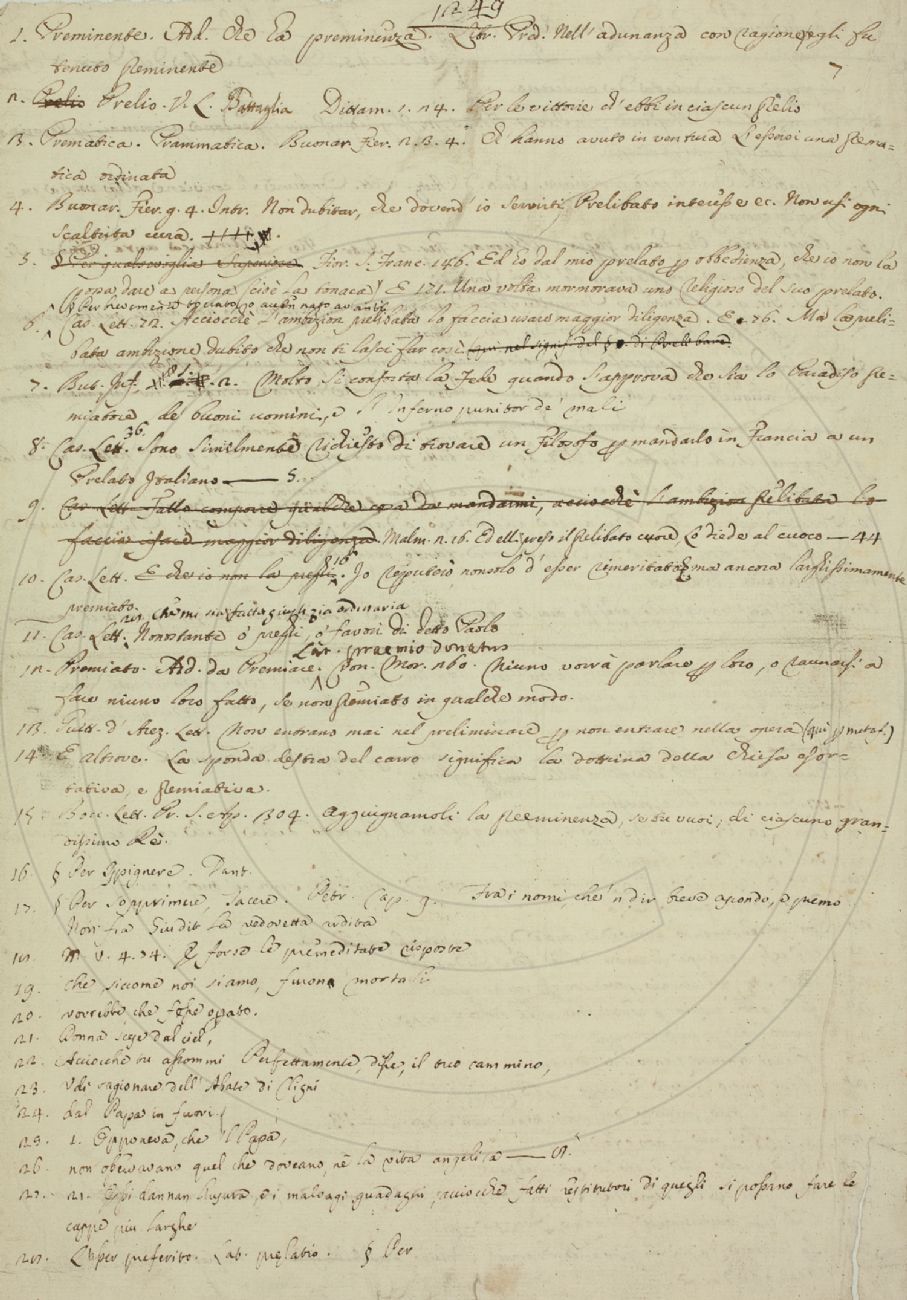 1249
1. Preminente. Add. che ha preminenza. Libr. Pred. Nell' adunanza con ragione egli fu
tenuto preminente
7
2. Prelio Prelio. V. L. Battaglia Dittam. 1. 24. Per le vittorie ch' ebbi in ciascun prelio
3. Prematica. Prammatica. Buonar. Fier. 2. 3. 4. Ch' hanno avuto in ventura D' esserci una prema-
tica ordinata
4. Buonar. Fier. g. 4. Intr. Non dubitar, che dovend' io servirti, Prelibato interesse ec. Non usi ogni
scaltrita cura.
5. § Per qualsivoglia Superiore. Fior. S. Franc. 146. Ed io dal mio prelato p obbedienza, che io non la
possa dare a persona (cioè la tonaca) E 171. Una volta mormorava uno religioso del suo prelato.
§ Per nuovamente toccato, o accennato avanti
6. Cas. Lett. 72. Acciocchè l' ambizion prelibata lo faccia usare maggior diligenza. E 76. Ma la preli-
bata ambizione dubito che non ti lasci far così qui nel signif. del § di Prelibare
7. But. Inf. 2. Molto si conforta la Fede quando s' approva che sia lo Paradiso pre-
miatore de' buoni uomini, e l' Inferno punitor de' mali
8. Cas. Lett. 36. Sono similmente richiesto di trovare un Filosofo p mandarlo in Francia a un
Prelato Italiano — 5.
9. Cas. Lett. Fatto comporre qualche cosa da mandarmi, acciocchè l' ambizion prelibata lo
faccia usare maggior diligenza Malm. 2. 16. Ed ella preso il prelibato cuore Lo diede al cuoco — 44
10. Cas. Lett. E che io non la pregli 16. Io reputerò non solo d' esser rimeritato, ma ancora larghissimamente
premiato.
che mi sia fatta giustizia ordinaria
11. Cas. Lett. Nonostante o' preghi, o' favori di detto Paolo
Lat. praemio donatus
12. Premiato. Add. da Premiare. Don. Mor. 260. Niuno vorrà parlare p loro, o raunarsi a
fare niuno loro fatto, se non premiato in qualche modo.
13. Guitt. d' Arez. Lett. Non entrano mai nel preliminare p non entrare nella opera (qui p metaf.)
14. E altrove. La sponda destra del carro significa la dottrina della Chiesa esor-
tativa, e premiativa.
15. Bocc. Lett. Pr. S. Ap. 304. Aggiugnamoli la preeminenza, se tu vuoi, di ciascuno gran-
dissimo Re.
16. § Per Ispignere. Dant.
17. § Per Sopprimere, Tacere. Petr. Cap. 9. Fra i nomi che 'n dir breve ascondo, e premo
Non fia Giudit la vedovetta ardita
18. M. V. 4. 74. E forse le premeditate risposte
19. che siccome noi siamo, furono mortali
20. vorrebbe, che fosse oprato.
21. Donna scese dal ciel,
22. Acciocchè tu assommi Perfettamente, disse, il tuo cammino,
23. Udì ragionare dell' Abate di Clignì
24. dal Papa in fuori
25. 1. Opponeva, che 'l Papa,
26. non observavano quel che doveano, nè la vita angelica —
27. 21. Essi dannan l' usura, e i malvagi guadagni, acciocchè fatti restitutori di quegli si possino fare le
cappe più larghe
28. L' esser preferito. Lat. praelatio. § Per